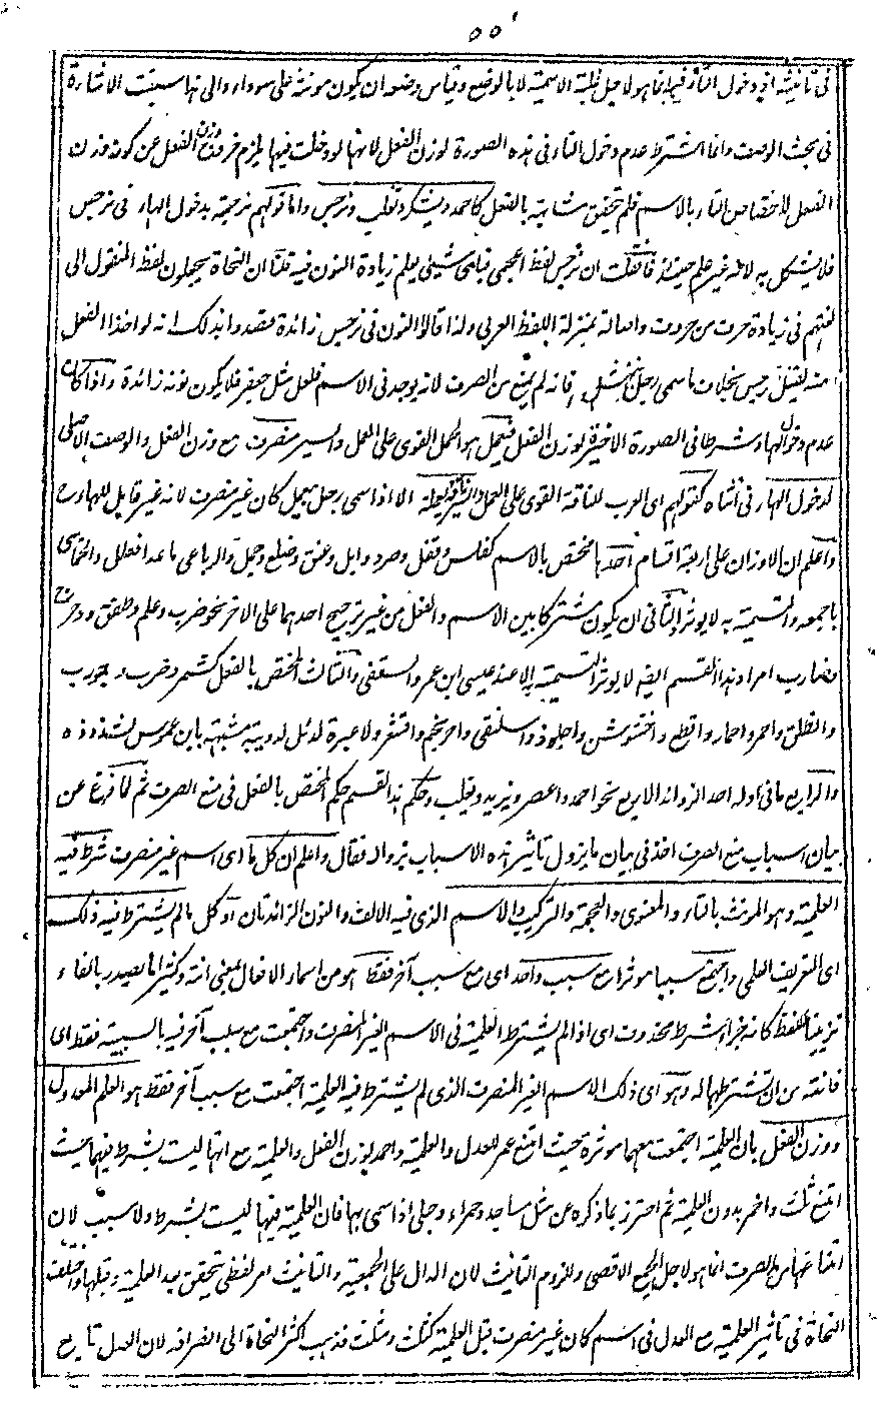 ٥٥
فى تانيثه اذ دخول التاء فيه انما هو لاجل غلبة الاسمية لا بالوضع وقياس وضعه ان يكون مونثه على سوداء والى هذا سبقت الاشارة
فى بحث الوصف وانما اشترط عدم دخول التاء فى هذه الصورة لوزن الفعل لانها لو دخلت فيها يلزم خروج وزن الفعل عن كونه وزن
الفعل لاختصاص التاء بالاسم فلم تحقق مشابهة بالفعل كاحمد ويشكر وتغلب ونرجس واما قولهم نرجسة بدخول الهاء فى نرجس
فلا يشكل به لانه غير علم حينئذ فان قلت ان نرجس لفظ اعجمى فباى شيئ يعلم زيادة النون فيه قلنا ان النحاة يجعلون لفظ المنقول الى
لغتهم فى زيادة حرف من حروفه واصالته بمنزلة اللفظ العربى ولذا قالوا النون فى نرجس زائدة قصدوا بذلك انه لو اخذ الفعل
منه لقيل رجس بخلاف ما سمى رجل بنهشل فانه لم يمنع من الصرف لانه يوجد فى الاسم فعلل مثل جعفر فلا يكون نونه زائدة واذا كان
عدم دخول الهاء شرطا فى الصورة الاخيرة لوزن الفعل فيعمل هو الجمل القوى على العمل والسير منصرف مع وزن الفعل والوصف الاصلى
لدخول الهاء فى انثاه كقولهم اى العرب للناقة القوى على العمل والسير يعملة الا اذا سمى رجل بيعمل كان غير منصرف لانه غير قابل للهاء ح
واعلم ان الاوزان على اربعة اقسام احدها مختص بالاسم كفلس وقفل وصرد وابل وعنق وضلع وجمل والرباعى ما عدا فعلل والخماسى
باجمعه والتسمية به لا يوثر الثانى ان يكون مشتركا بين الاسم والفعل من غير ترجيح احدهما على الاخر نحو ضرب وعلم وظفق ودحرج
وضارب امرا وهذا القسم ايضا لا يوثر التسمية به الا عند عيسى ابن عمر والمستغنى والثالث المختص بالفعل كشمر وضرب وجورب
وانطلق واحمر واحمار واقطع واخشوشن واجلوذ واسلنقى واحرنجم واقشعر ولا عبرة لدئل لدويبة مشبهة بابن عرس لشذوذه
والرابع ما فى اوله احد الزوائد الاربع نحو احمد واعصر ويزيد وتغلب وحكم هذا القسم حكم المختص بالفعل فى منع الصرف ثم لما فرغ عن
بيان اسباب منع الصرف اخذ فى بيان ما يزول تاثير هذه الاسباب بزواله فقال واعلم ان كل ما اى اسم غير منصرف شرط فيه
العلمية وهو المونث بالتاء والمعنوى والعجمة والتركيب والاسم الذى فيه الالف والنون الزائدتان او كل ما لم يشترط فيه ذلك
اى التعريف العلمى واجتمع سببا موثرا مع سبب واحد اى مع سبب آخر فقط هو من اسماء الافعال بمعنى انته وكثيرا ما يصدر بالفاء
تزيينا للفظ كانه جزاء شرط محذوف اى اذا لم يشترط العلمية فى الاسم الغير المنصرف واجتمعت مع سبب آخر فيه بالسببية فقط اى
فانته من ان تشترطها له وهو اى ذلك الاسم الغير المنصرف الذى لم يشترط فيه العلمية اجتمعت مع سبب آخر فقط هو العلم المعدول
ووزن الفعل بان العلمية اجتمعت معهما موثرة حيث امتنع عمر للعدل والعلمية واحمد لوزن الفعل والعلمية مع انها ليست بشرط فيهما حيث
امتنع ثلث واحمر بدون العلمية ثم احترز بما ذكره عن مثل مساجد وحمراء وحبلى اذا سمى بها فان العلمية فيها ليست بشرط ولا سبب لان
امتناعها من الصرف انما هو لاجل الجمع الاقصى ولزوم التانيث لان الدال على الجمعية والتانيث امر لفظى يتحقق بعد العلمية وقبلها واختلفت
النحاة فى تاثير العلمية مع العدل فى اسم كان غير منصرف قبل العلمية كثلث ومثلث فذهب اكثر النحاة الى انصرافه لان العدل تابع